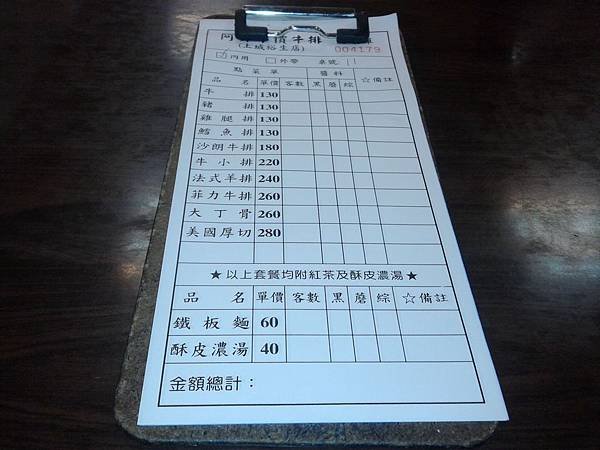 阿 價牛排
(土城裕生店) 004179
內用 外帶 桌號
點菜單 醬料
品名 單價 客數 黑 蘑 綜 ☆備註
牛排 130
豬排 130
雞腿排 130
鱈魚排 130
沙朗牛排 180
牛小排 220
法式羊排 240
菲力牛排 260
大丁骨 260
美國厚切 280
★以上套餐均附紅茶及酥皮濃湯★
品名 單價 客數 黑 蘑 綜 ☆備註
鐵板麵 60
酥皮濃湯 40
金額總計：